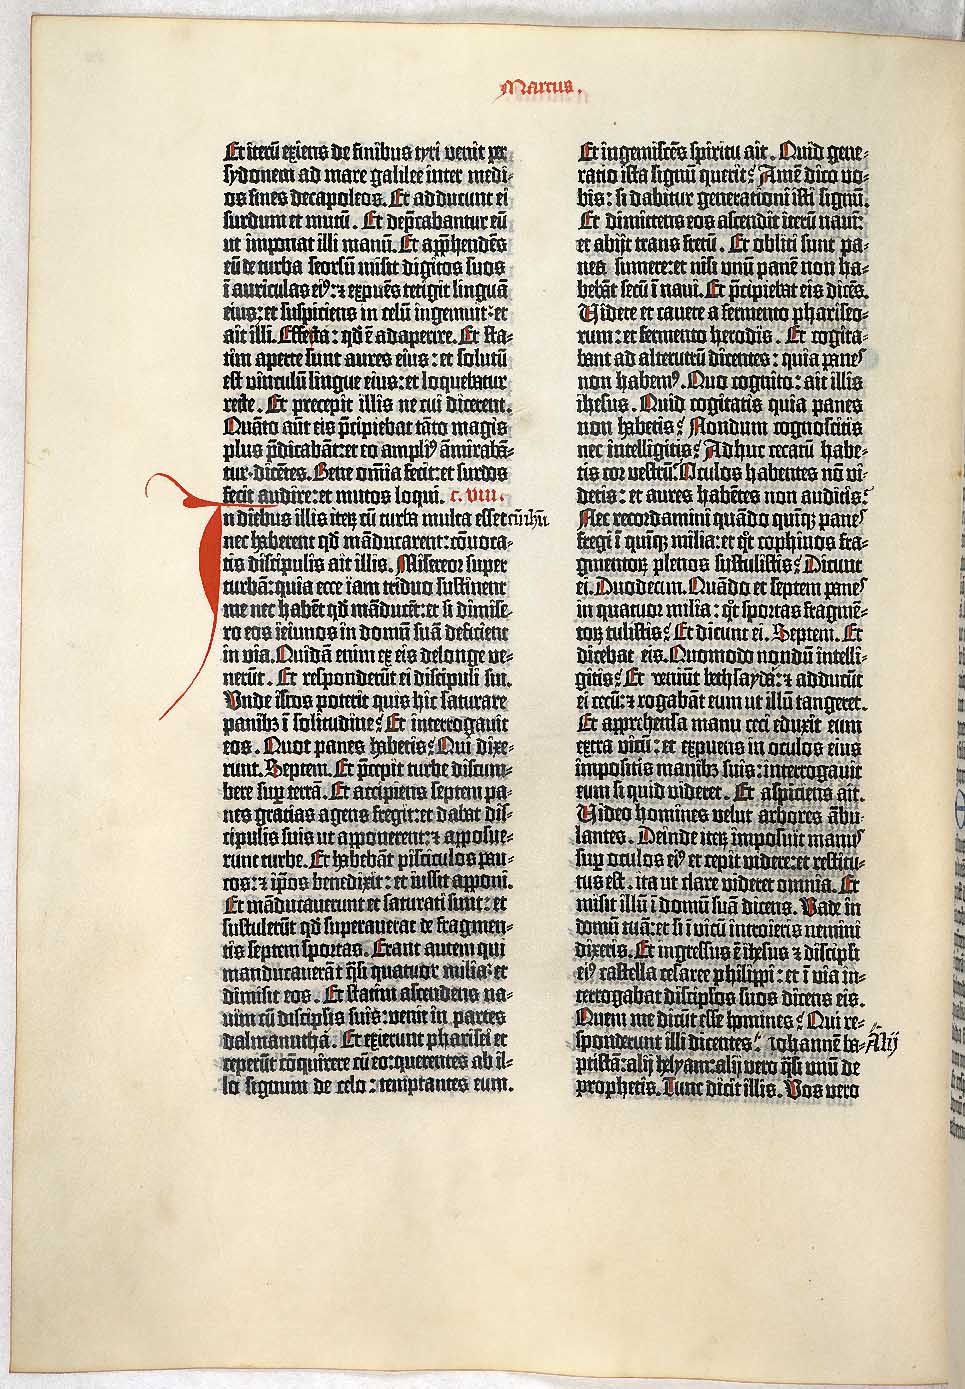 Marcus.
Et iterū exiens de finibus tyri venit per
sydonem ad mare galilee inter medi-
os fines decapoleos. Et adducunt ei
surdum et mutū. Et dep̄cabantur eū
ut imponat illi manū. Et app̄hendēs
eū de turba seorsū misit digitos suos
ī auriculas eiꝰ: ⁊ expuēs tetigit linguā
eius: et suspiciens in celū ingemuit: et
ait illi. Effeta: qđ ē adaperire. Et sta-
tim aperte sunt aures eius: et solutū
est vinculū lingue eius: et loquebatur
recte. Et precepit illis ne cui dicerent.
Quāto aūt eis p̄cipiebat tāto magis
plus p̄dicabāt: et eo ampliꝰ āmirabā-
tur dicētes. Bene omīa fecit: et surdos
fecit audire: et mutos loqui. c. viii.
In diebus illis iteꝝ cū turba multa esset
nec haberent qđ māducarent: cōvoca-
tis discipulis ait illis. Misereor super
turbā: quia ecce iam triduo sustinent
me nec habēt qđ māducēt: et si dimise-
ro eos ieiunos in domū suā deficient
in via. Quidā enim ex eis de longe ve-
nerūt. Et responderūt ei discipuli sui.
Unde istos poterit quis hic saturare
panibꝫ ī solitudine? Et interrogavit
eos. Quot panes habetis? Qui dixe-
runt. Septem. Et p̄cepit turbe discum-
bere sup̄ terrā. Et accipiens septem pa-
nes gracias agens fregit: et dabat dis-
cipulis suis ut apponerent: ⁊ apposue-
runt turbe. Et habebāt pisciculos pau-
cos: ⁊ ip̄os benedixit: et iussit apponi.
Et māducaverunt et saturati sunt: et
sustulerūt qđ superaverat de fragmen-
tis septem sportas. Erant autem qui
manducaverāt q̄si quatuor milia: et
dimisit eos. Et statim ascendens na-
vim cū discipl̄is suis: venit in partes
dalmanuthā. Et exierunt pharisei et
ceperūt cōquirere cū eo: querentes ab il-
lo signum de celo: temptantes eum.
Et ingemiscēs spiritu ait. Quid gene-
ratio ista signū querit? Amē dico vo-
bis: si dabitur generationi isti signū.
Et dimittens eos ascendit iterū navī:
et abijt trans fretū. Et obliti sunt pa-
nes sumere: et nisi unū panē non ha-
bebāt secū ī navi. Et p̄cipiebat eis dicēs.
Videte et cavete a fermento phariseo-
rum: et fermento herodis. Et cogita-
bant ad alterutrū dicentes: quia panes
non habemꝰ. Quo cognito: ait illis
ihesus. Quid cogitatis quia panes
non habetis? Nondum cognoscitis
nec intelligitis? Adhuc cecatū habe-
tis cor vestrū? Oculos habentes nō vi-
detis: et aures habētes non auditis?
Nec recordamini quādo quīqꝫ panes
fregi ī quīqꝫ milia: et q̄t cophinos fra-
gmentoꝝ plenos sustulistis? Dicunt
ei. Duodecim. Quādo et septem panes
in quatuor milia: q̄t sportas fragmē-
toꝝ tulistis? Et dicunt ei. Septem. Et
dicebat eis. Quomodo nondū intelli-
gitis? Et veniūt bethsaydā: ⁊ adducūt
ei cecū: ⁊ rogabāt eum ut illū tangeret.
Et apprehensa manu ceci eduxit eum
extra vicū: et expuens in oculos eius
impositis manibꝫ suis: interrogavit
eum si quid videret. Et aspiciens ait.
Video homines velut arbores ābu-
lantes. Deinde iteꝝ imposuit manus
sup̄ oculos eiꝰ et cepit videre: et restitu-
tus est, ita ut clare videret omnia. Et
misit illū ī domū suā dicens. Vade in
domū tuā: et si ī vicū introieris nemini
dixeris. Et ingressus ē ihesus ⁊ discipl̄i
eiꝰ castella cesaree philippi: et ī via in-
terrogabat discipl̄os suos dicens eis.
Quem me dicūt esse homines? Qui re-
sponderunt illi dicentes. Iohannē ba-
ptistā: alij helyam: alij vero q̄si unū de
prophetis. Tunc dicit illis. Vos vero
Alij